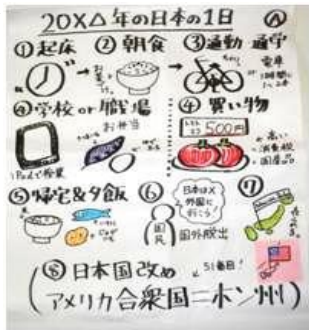 20X△年の日本の1日 Ⓐ
①起床 ②朝食 ③通勤 通学
電車
④学校or職場 ④買い物
お弁当
500円
高い
消費税
国産品
iPadで授業
⑤帰宅&夕飯 ⑥ ⑦
日本はX
外国に
行こう!
国民
国外脱出
⑧日本国改め 51番目!
(アメリカ合衆国ニホン州)